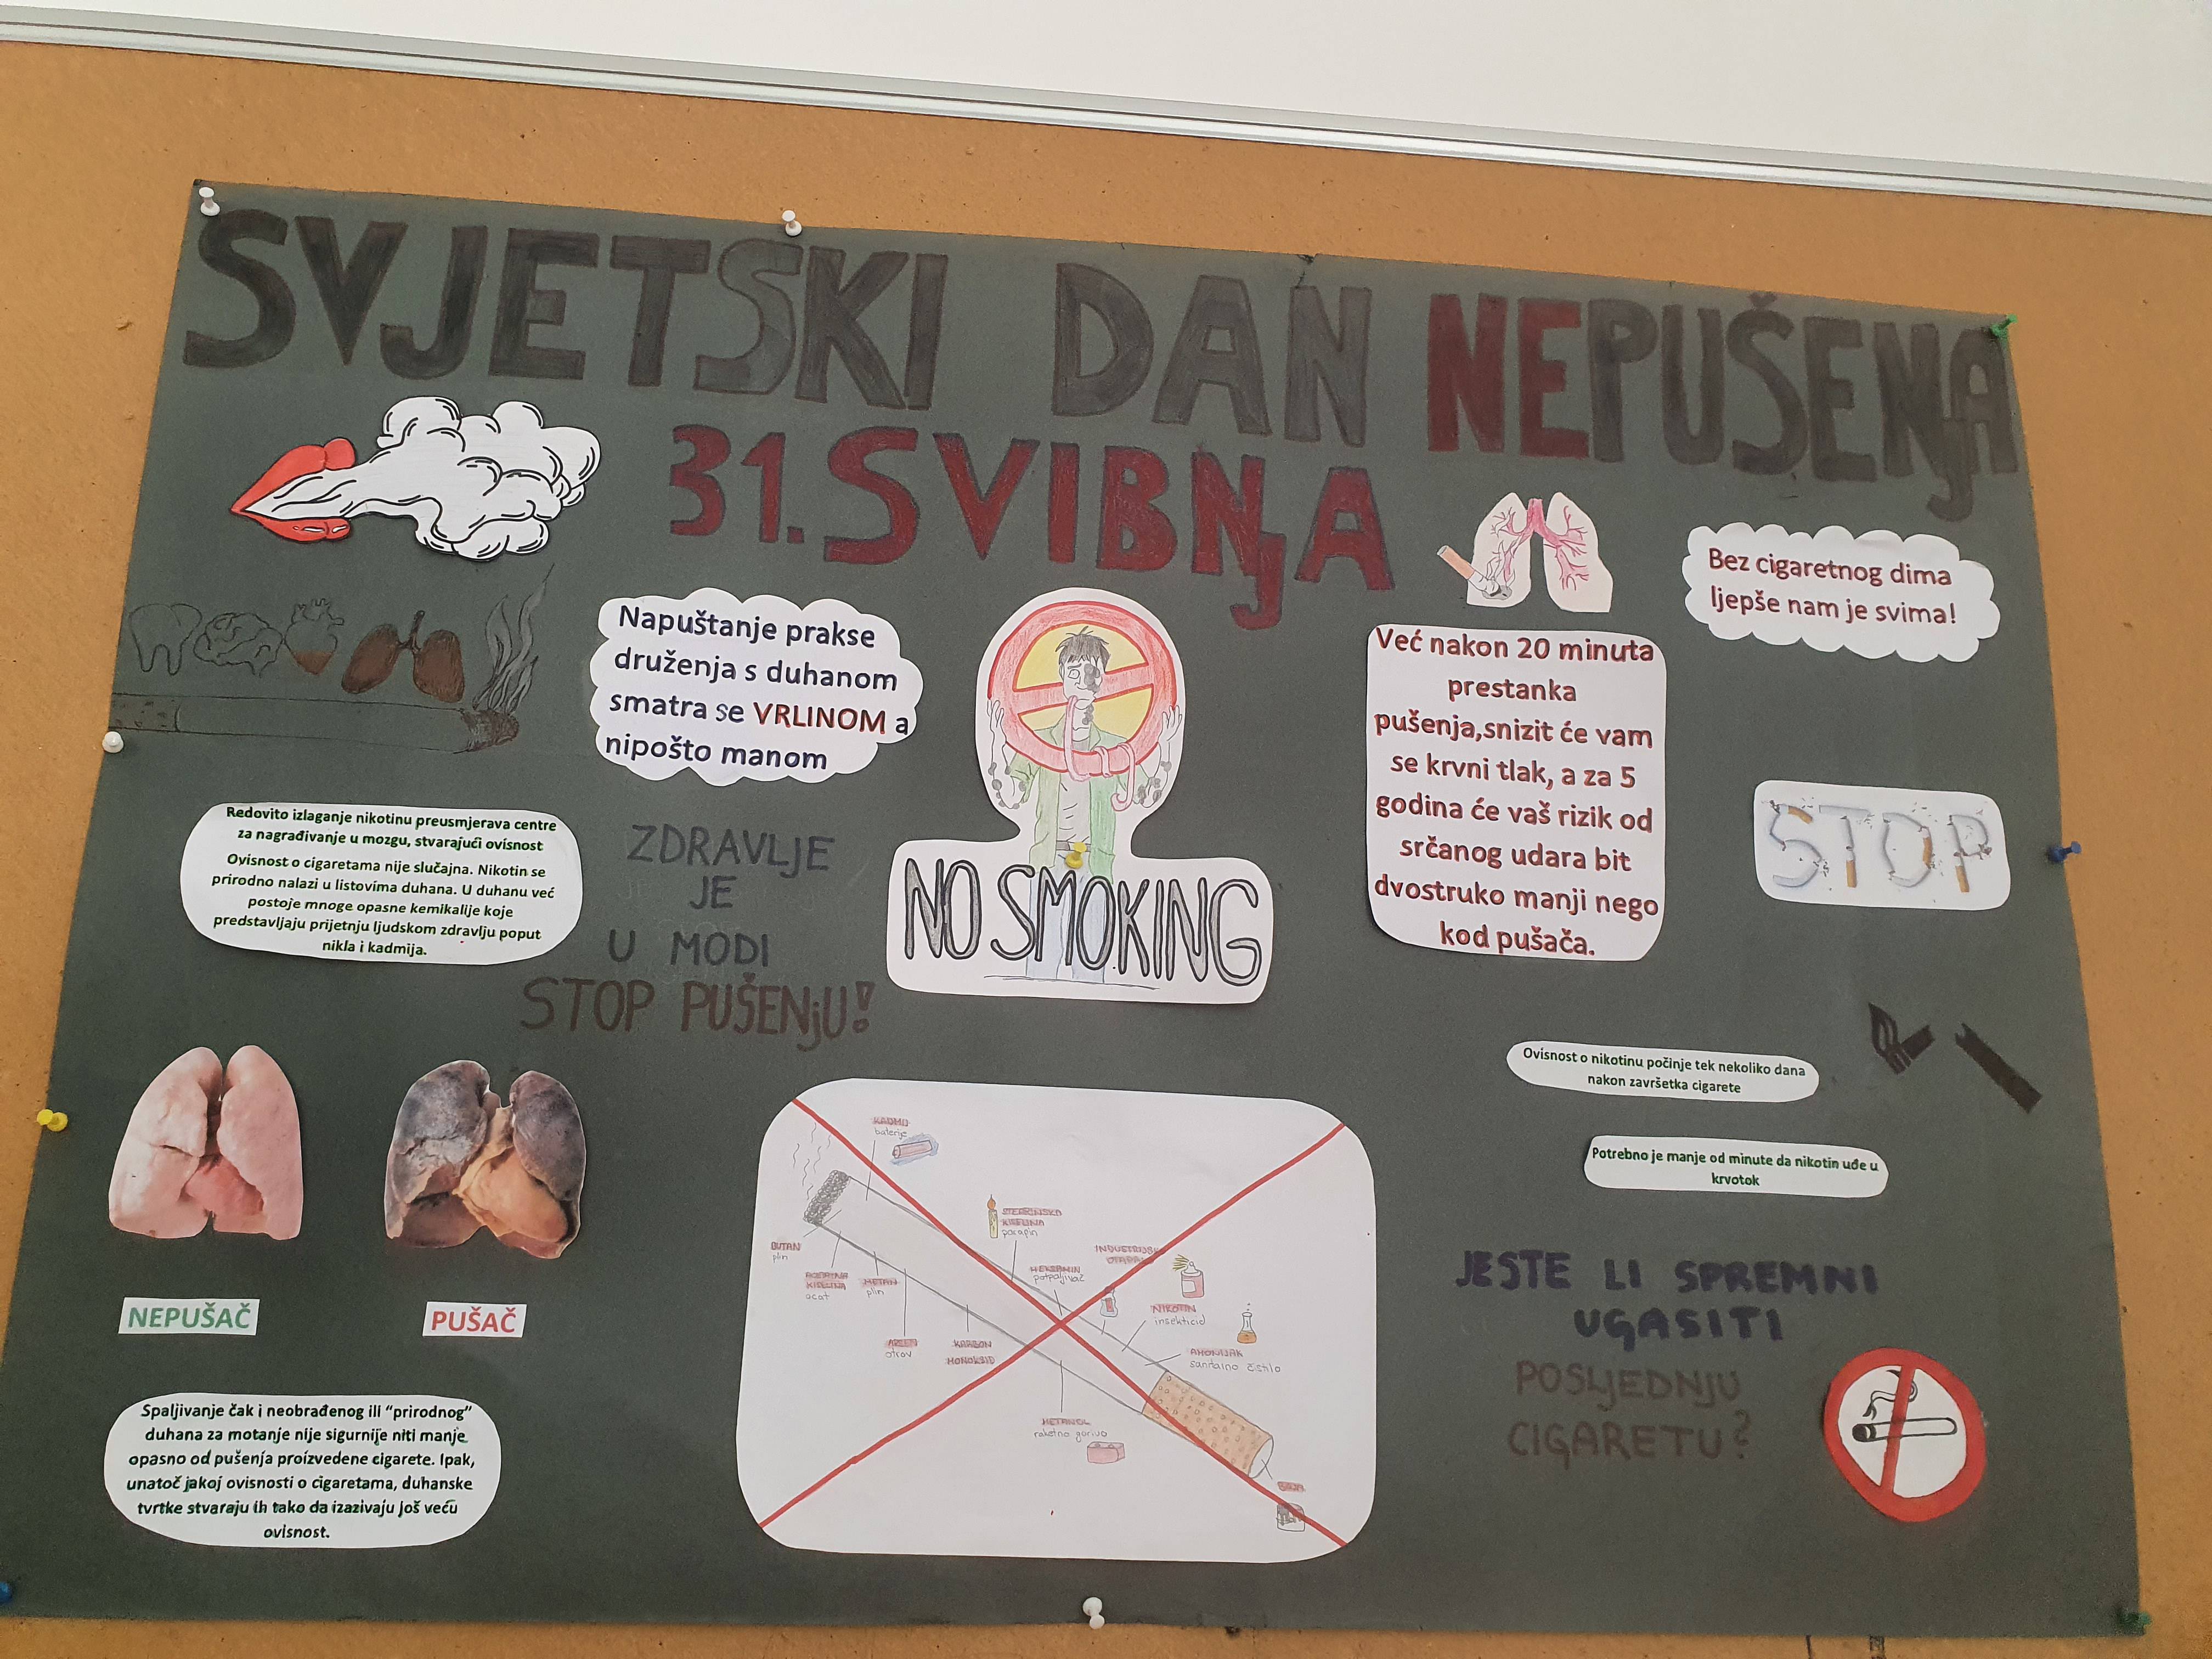 SVJETSKI DAN NEPUŠENJA
31. SVIBNJA
Bez cigaretnog dima
ljepše nam je svima!
Napuštanje prakse
druženja s duhanom
smatra se VRLINOM a
nipošto manom
Već nakon 20 minuta
prestanka
pušenja,snizit će vam
se krvni tlak, a za 5
godina će vaš rizik od
srčanog udara bit
dvostruko manji nego
kod pušača.
STOP
Redovito izlaganje nikotinu preusmjerava centre
za nagrađivanje u mozgu, stvarajući ovisnost
Ovisnost o cigaretama nije slučajna. Nikotin se
prirodno nalazi u listovima duhana. U duhanu već
postoje mnoge opasne kemikalije koje
predstavljaju prijetnju ljudskom zdravlju poput
nikla i kadmija.
ZDRAVLJE
JE
U MODI
STOP PUŠENjU!
NO SMOKING
Ovisnost o nikotinu počinje tek nekoliko dana
nakon završetka cigarete
Potrebno je manje od minute da nikotin uđe u
krvotok
NEPUŠAČ
PUŠAČ
Spaljivanje čak i neobrađenog ili “prirodnog”
duhana za motanje nije sigurnije niti manje
opasno od pušenja proizvedene cigarete. Ipak,
unatoč jakoj ovisnosti o cigaretama, duhanske
tvrtke stvaraju ih tako da izazivaju još veću
ovisnost.
baterije
STEARINSKA
KISELINA
parafin
BUTAN
plin
KISELINA
ocat
METAN
plin
otrov
KARBON
MONOKSID
potpaljivač
NIKOTIN
insekticid
AMONIJAK
METANOL
raketno gorivo
BOJA
JESTE LI SPREMNI
UGASITI
POSLJEDNJU
CIGARETU?